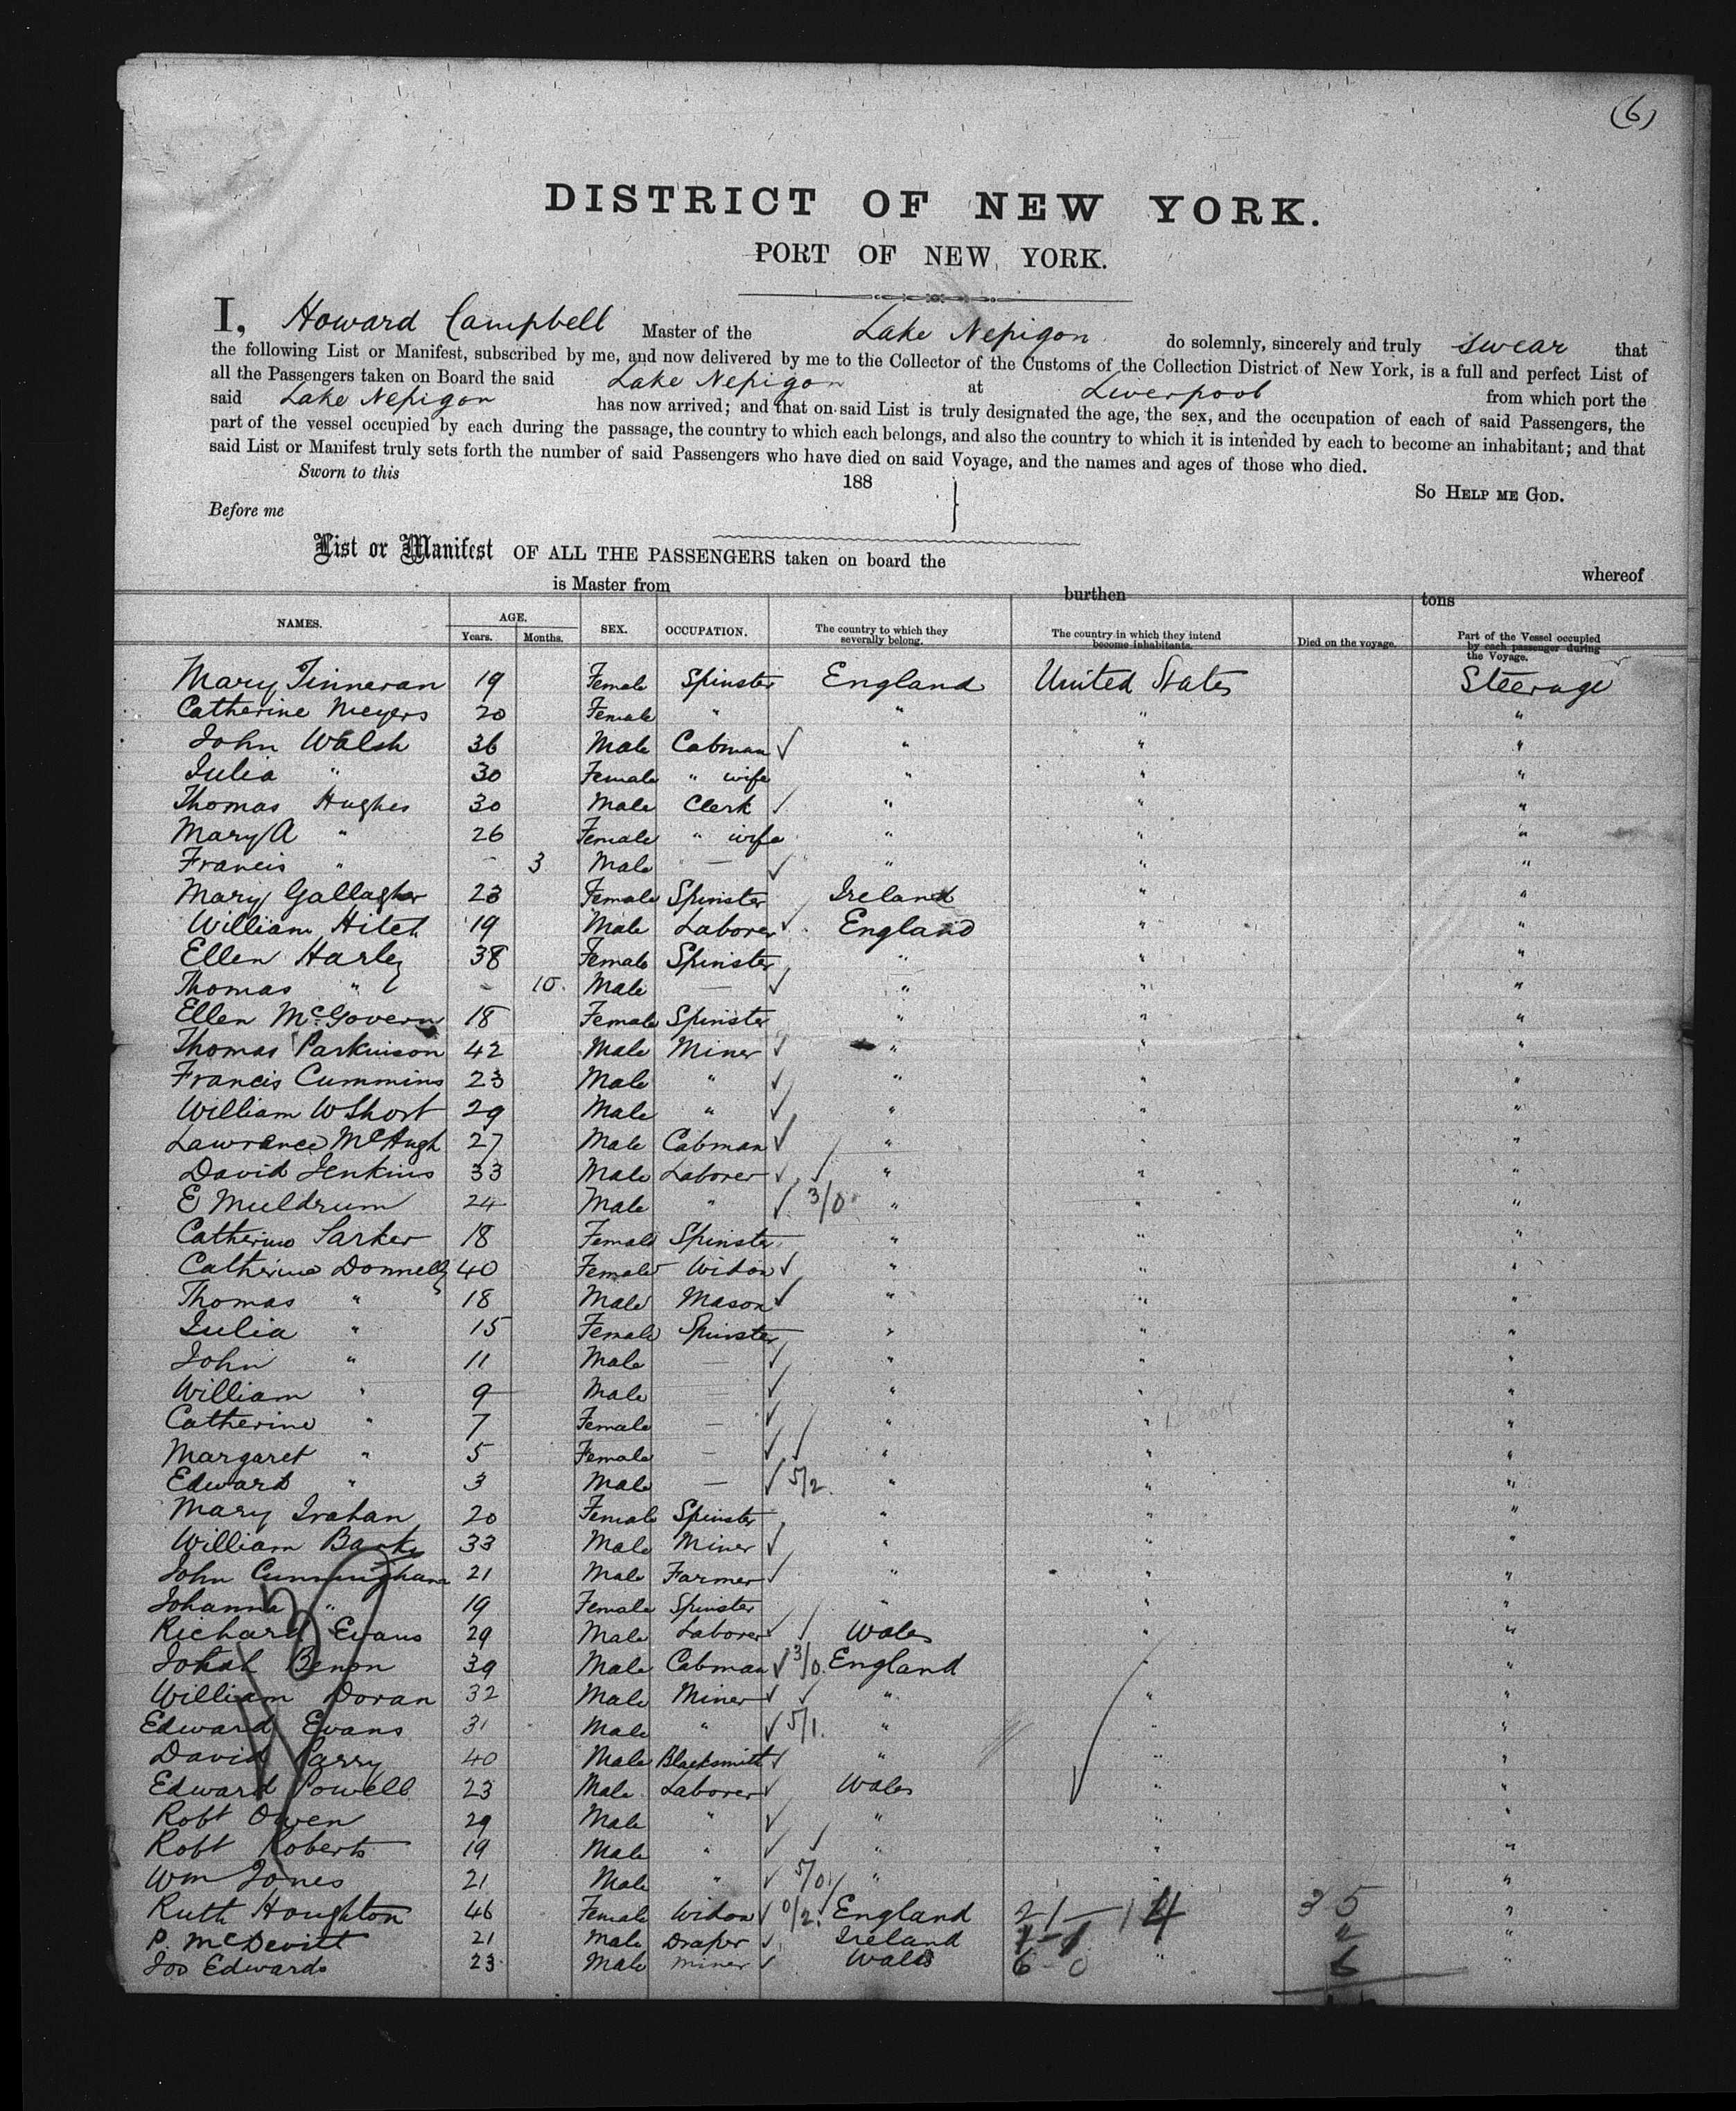 (6)
DISTRICT OF NEW YORK.
PORT OF NEW YORK.
I, Howard Campbell Master of the Lake Nepigon do solemnly, sincerely and truly swear that
the following List or Manifest, subscribed by me, and now delivered by me to the Collector of the Customs of the Collection District of New York, is a full and perfect List of
all the Passengers taken on Board the said Lake Nepigon at Liverpool from which port the
said Lake Nepigon has now arrived; and that on said List is truly designated the age, the sex, and the occupation of each of said Passengers, the
part of the vessel occupied by each during the passage, the country to which each belongs, and also the country to which it is intended by each to become an inhabitant; and that
said List or Manifest truly sets forth the number of said Passengers who have died on said Voyage, and the names and ages of those who died.
Sworn to this 188 So Help me God.
Before me
List or Manifest OF ALL THE PASSENGERS taken on board the whereof
is Master from burthen tons
NAMES. AGE. Years. Months. SEX. OCCUPATION. The country to which they severally belong. The country in which they intend become inhabitants. Died on the voyage. Part of the Vessel occupied by each passenger during the Voyage.
Mary Finneran 19 Female Spinster England United States Steerage
Catherine Meyers 20 Female " " " "
John Walsh 36 Male Cabman ✓ " " "
Julia " 30 Female " wife " " "
Thomas Hughes 30 Male Clerk ✓ " " "
Mary A " 26 Female " wife " " "
Francis " - 3 Male — ✓ " " "
Mary Gallagher 23 Female Spinster Ireland " "
William Hitch 19 Male Laborer ✓ England " "
Ellen Harley 38 Female Spinster " " "
Thomas " - 10 Male — ✓ " " "
Ellen McGovern 18 Female Spinster " " "
Thomas Parkinson 42 Male Miner ✓ " " "
Francis Cummins 23 Male " ✓ " " "
William W Short 29 Male " ✓ " " "
Lawrance McHugh 27 Male Cabman ✓ " " "
David Jenkins 33 Male Laborer ✓ " " "
E Muldrum 24 Male " ✓ 3/0 " " "
Catherine 18 Female Spinster " " "
Catherine Donnelly 40 Female Widow ✓ " " "
Thomas " 18 Male Mason ✓ " " "
Julia " 15 Female Spinster " " "
John " 11 Male — ✓ " " "
William " 9 Male — ✓ " " "
Catherine " 7 Female — ✓ " " "
Margaret " 5 Female — ✓ " " "
Edward " 3 Male — ✓ 5/2. " " "
Mary 20 Female Spinster " " "
William Banks 33 Male Miner ✓ " " "
John Cunningham 21 Male Farmer ✓ " " "
Johanna " 19 Female Spinster " " "
Richard Evans 29 Male Laborer ✓ Wales " "
Benon 39 Male Cabman ✓ 3/0. England " "
William Doran 32 Male Miner ✓ " " "
Edward Evans 31 Male " ✓ 5/1. " " "
David Parry 40 Male Blacksmith ✓ " " "
Edward Powell 23 Male Laborer ✓ Wales " "
Robt Owen 29 Male " ✓ " " "
Robt Roberts 19 Male " ✓ " " "
Wm Jones 21 Male " ✓ 5/0 " " "
Ruth Houghton 46 Female Widow ✓ 0/2. England 21-14 35 "
P. McDevitt 21 Male Draper ✓ Ireland 1-1 2 "
Jos Edwards 23 Male Miner ✓ Wales 6-0 " 6 "